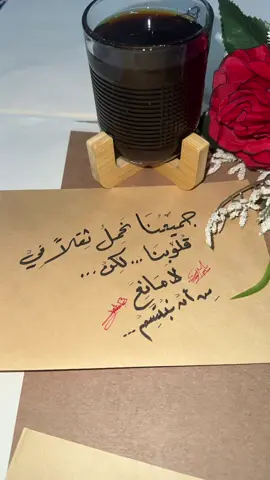 جميعنَا نحمل ثقلاً فِيْ
قلوبنا... لكن...
لا مَانِعَ
مِن أنْ نبْتَسِم...